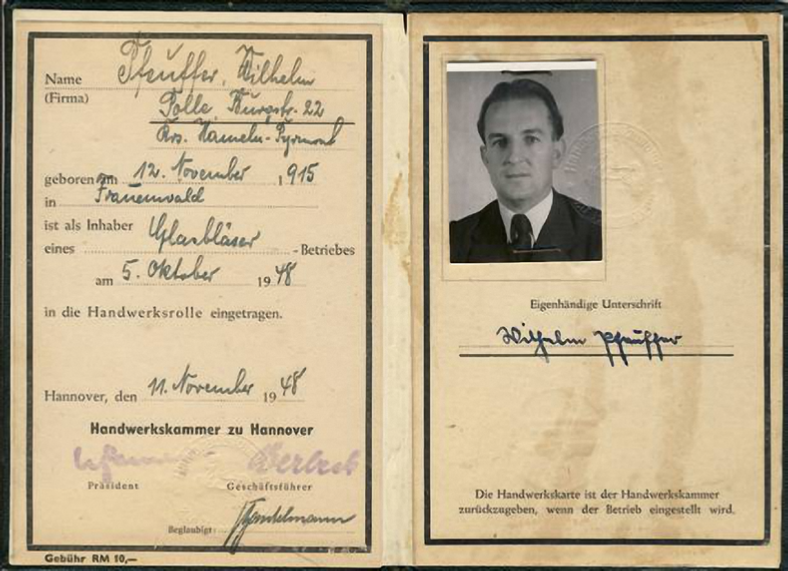 Name Pfeuffer, Wilhelm
(Firma)
Polle, Burgstr. 22
Krs. Hameln-Pyrmont
geboren am 12. November 1915
in Frauenwald
ist als Inhaber Glasbläser
eines -Betriebes
am 5. Oktober 1948
in die Handwerksrolle eingetragen.
Hannover, den 11. November 1948
Handwerkskammer zu Hannover
Präsident Geschäftsführer
Beglaubigt:
Gebühr RM 10,—
Eigenhändige Unterschrift
Wilhelm Pfeuffer
Die Handwerkskarte ist der Handwerkskammer
zurückzugeben, wenn der Betrieb eingestellt wird.